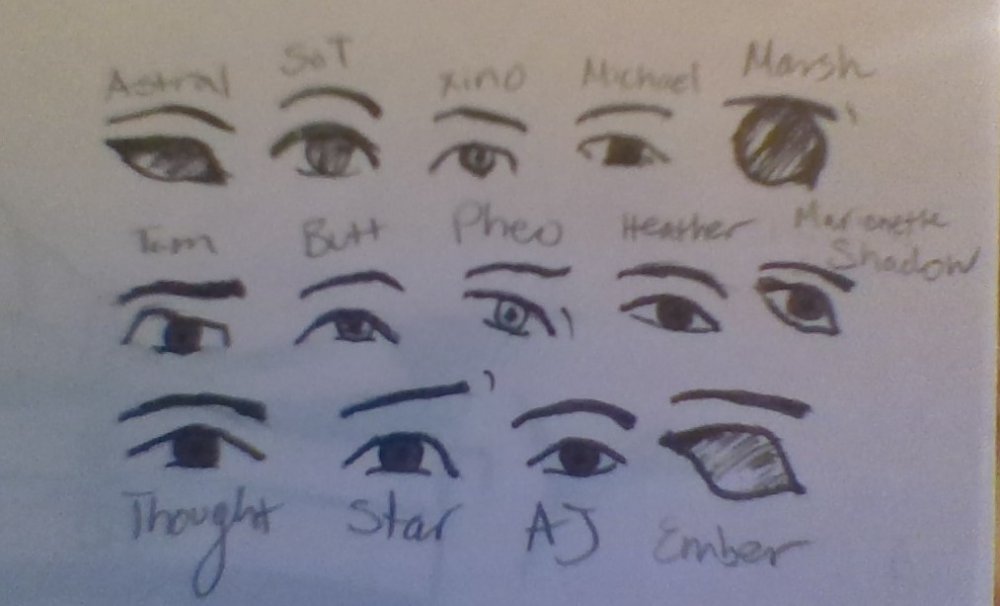 Astral SoT Xino Michael Marsh
Tom Butt Pheo Heather Marionette
Shadow
Thought Star AJ Ember